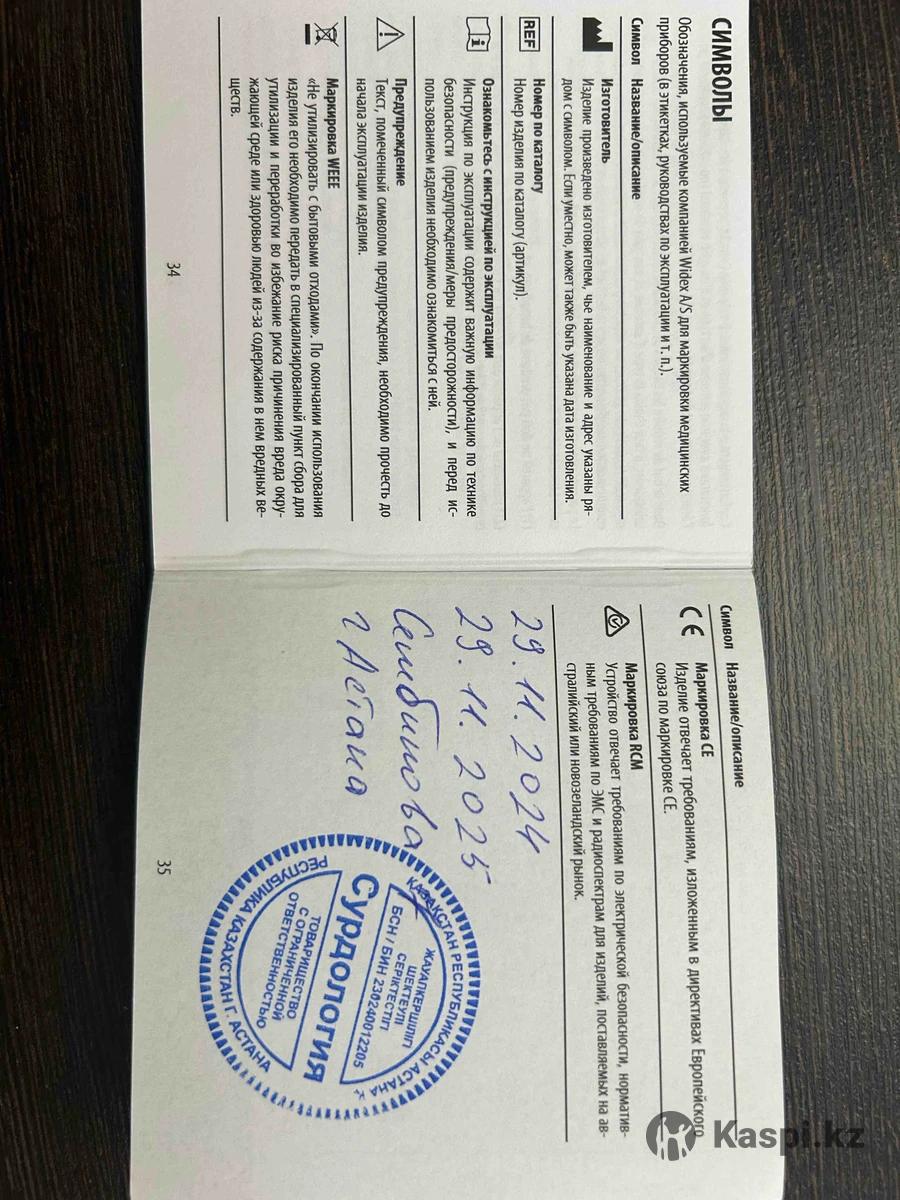 СИМВОЛЫ
Обозначения, используемые компанией Widex A/S для маркировки медицинских
приборов (в этикетках, руководствах по эксплуатации и т. п.).
Символ Название/описание
Изготовитель
Изделие произведено изготовителем, чье наименование и адрес указаны ря-
дом с символом. Если уместно, может также быть указана дата изготовления.
REF
Номер по каталогу
Номер изделия по каталогу (артикул).
Ознакомьтесь с инструкцией по эксплуатации
Инструкция по эксплуатации содержит важную информацию по технике
безопасности (предупреждения/меры предосторожности), и перед ис-
пользованием изделия необходимо ознакомиться с ней.
Предупреждение
Текст, помеченный символом предупреждения, необходимо прочесть до
начала эксплуатации изделия.
Маркировка WEEE
«Не утилизировать с бытовыми отходами». По окончании использования
изделия его необходимо передать в специализированный пункт сбора для
утилизации и переработки во избежание риска причинения вреда окру-
жающей среде или здоровью людей из-за содержания в нем вредных ве-
ществ.
34
Символ Название/описание
CE
Маркировка CE
Изделие отвечает требованиям, изложенным в директивах Европейского
союза по маркировке CE.
Маркировка RCM
Устройство отвечает требованиям по электрической безопасности, норматив-
ным требованиям по ЭМС и радиоспектрам для изделий, поставляемых на ав-
стралийский или новозеландский рынок.
29.11.2024
29.11.2025
г Астана
ҚАЗАҚСТАН РЕСПУБЛИКАСЫ АСТАНА Қ.
ЖАУАПКЕРШІЛІГІ
ШЕКТЕУЛІ
СЕРІКТЕСТІГІ
БСН / БИН 230240012205
Сурдология
ТОВАРИЩЕСТВО
С ОГРАНИЧЕННОЙ
ОТВЕТСТВЕННОСТЬЮ
РЕСПУБЛИКА КАЗАХСТАН Г. АСТАНА
35
Kaspi.kz